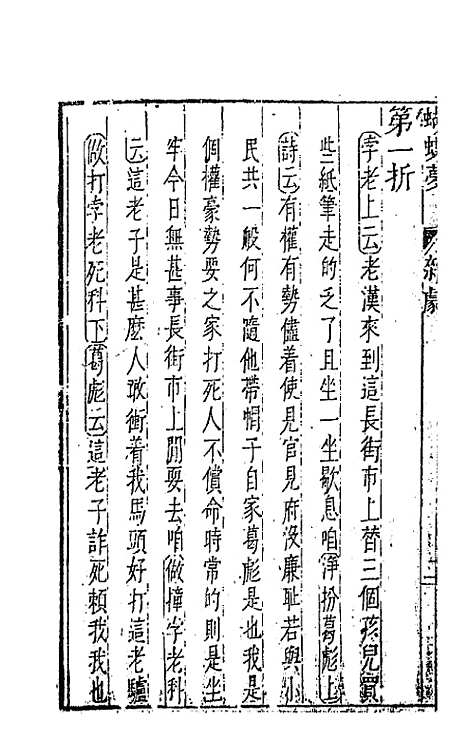 蝴蝶夢 雜劇 二
第一折
孛老上云老漢來到這長街市上替三個孩兒買
些紙筆走的乏了且坐一坐歇息咱淨扮葛彪上
詩云有權有勢儘着使見官見府沒廉耻若與小
民共一般何不隨他帶帽子自家葛彪是也我是
個權豪勢要之家打死人不償命時常的則是坐
牢今日無甚事長街市上閒耍去咱做撞孛老科
云這老子是甚麽人敢衝着我馬頭好打這老驢
做打孛老死科下葛彪云這老子詐死賴我我也